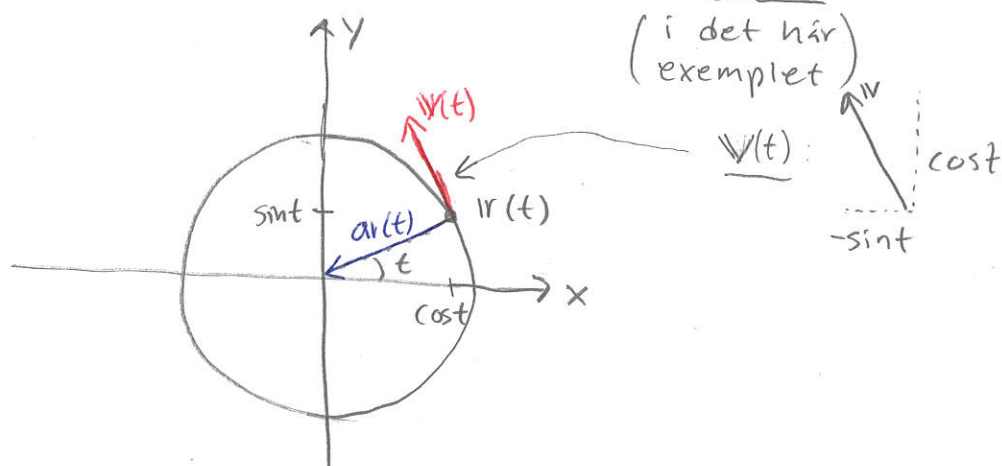 y
(i det här
exemplet)
𝕧(t)
𝕧
𝕧(t):
cost
sint
𝕒(t)
𝕣(t)
-sint
t
cost
x